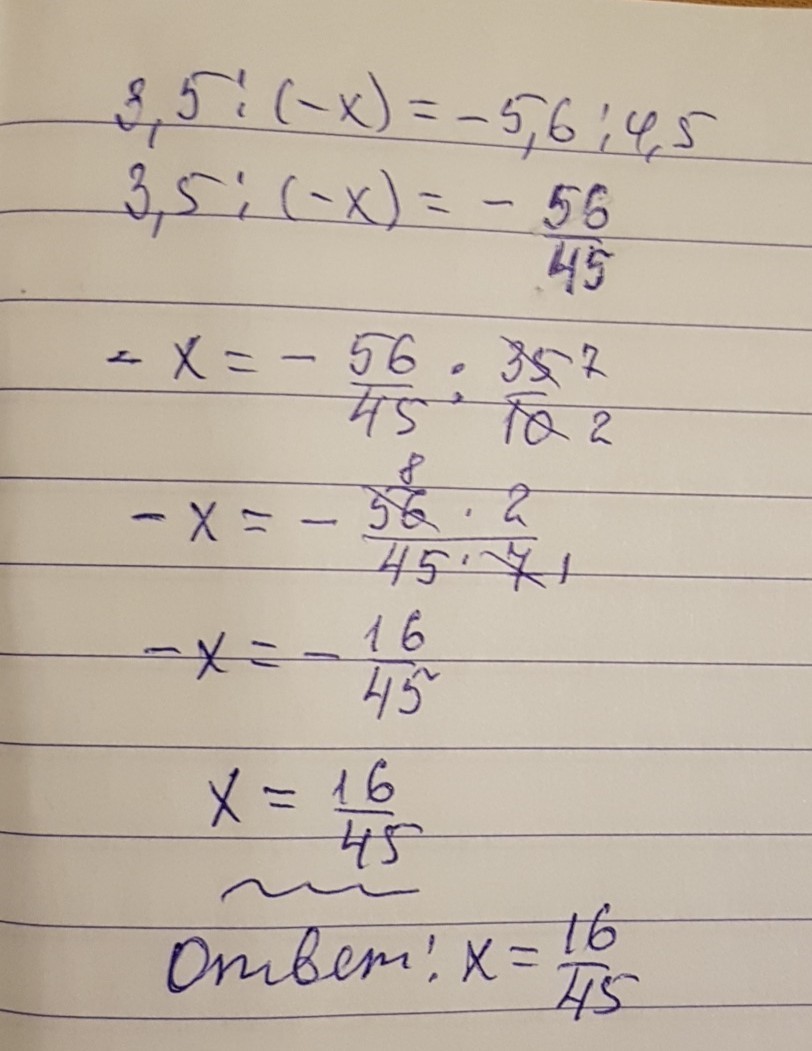 3,5 : (-x) = -5,6 : 4,5
3,5 : (-x) = - 56/45
- x = - 56/45 : 35 7/10 2
- x = - 56 8 · 2/45 · 7 1
- x = - 16/45
x = 16/45
Ответ: x = 16/45